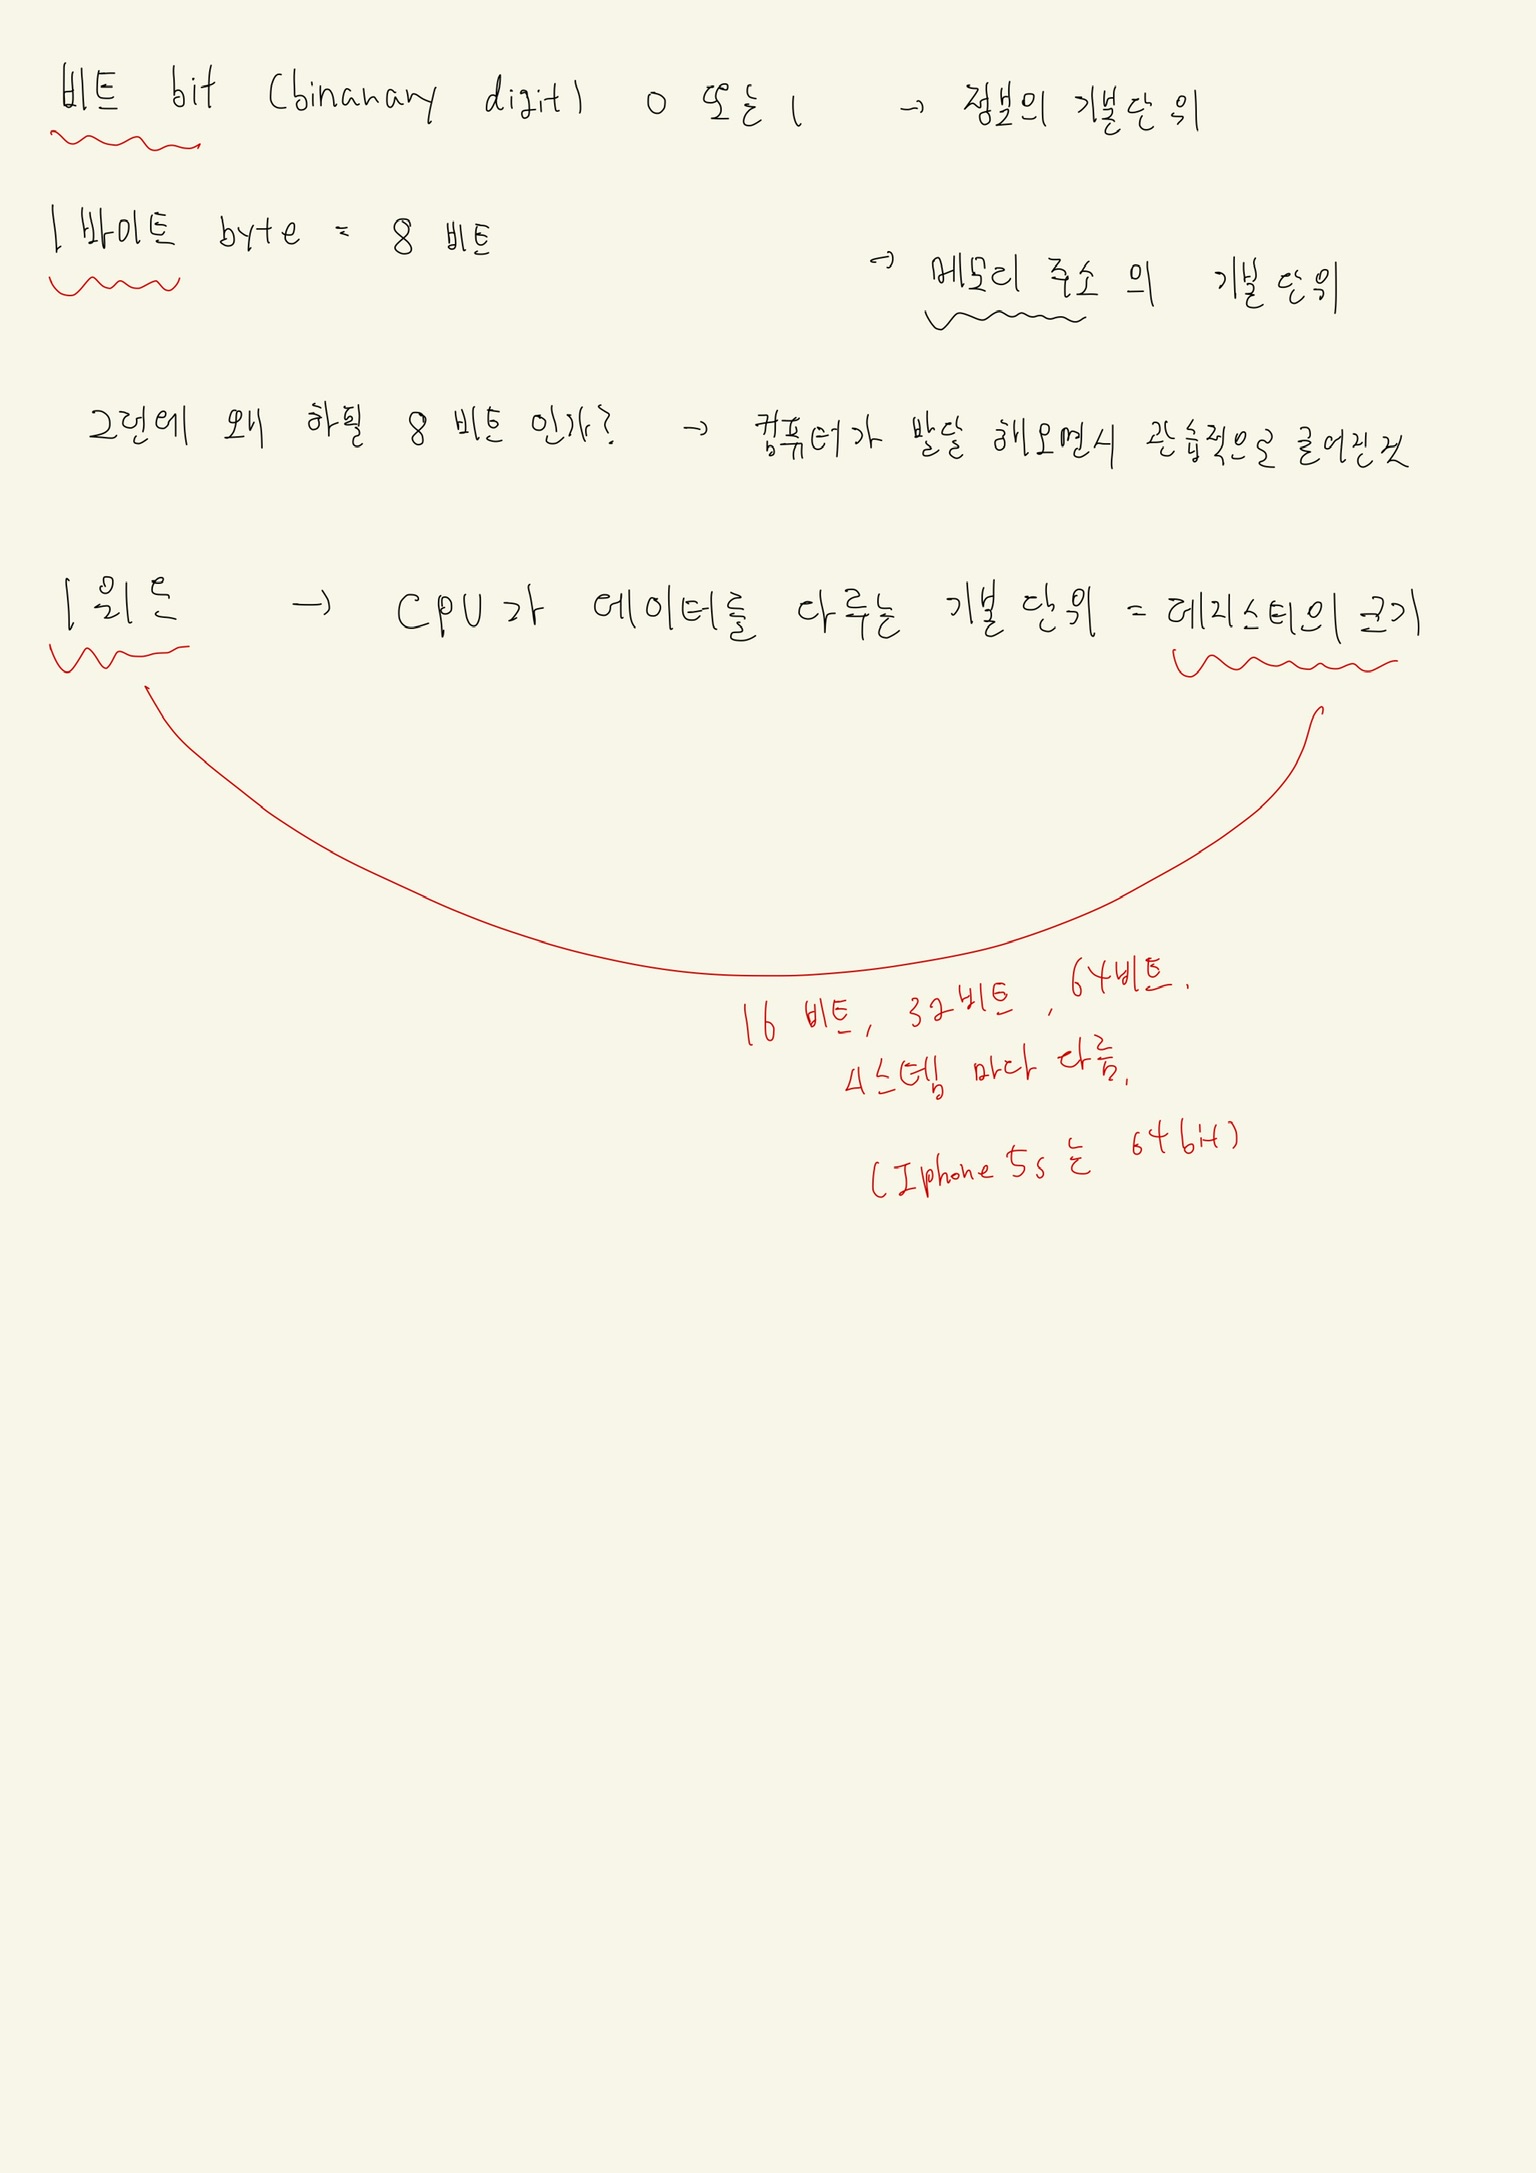 비트 bit (binanary digit) 0 또는 1 → 정보의 기본단위
1 바이트 byte = 8 비트 → 메모리 주소의 기본단위
그런데 왜 하필 8 비트 인가? → 컴퓨터가 발달 해오면서 관습적으로 굳어진것
1 워드 → CPU가 데이터를 다루는 기본 단위 = 레지스터의 크기
16 비트, 32비트, 64비트.
시스템 마다 다름.
(Iphone 5s 는 64bit)